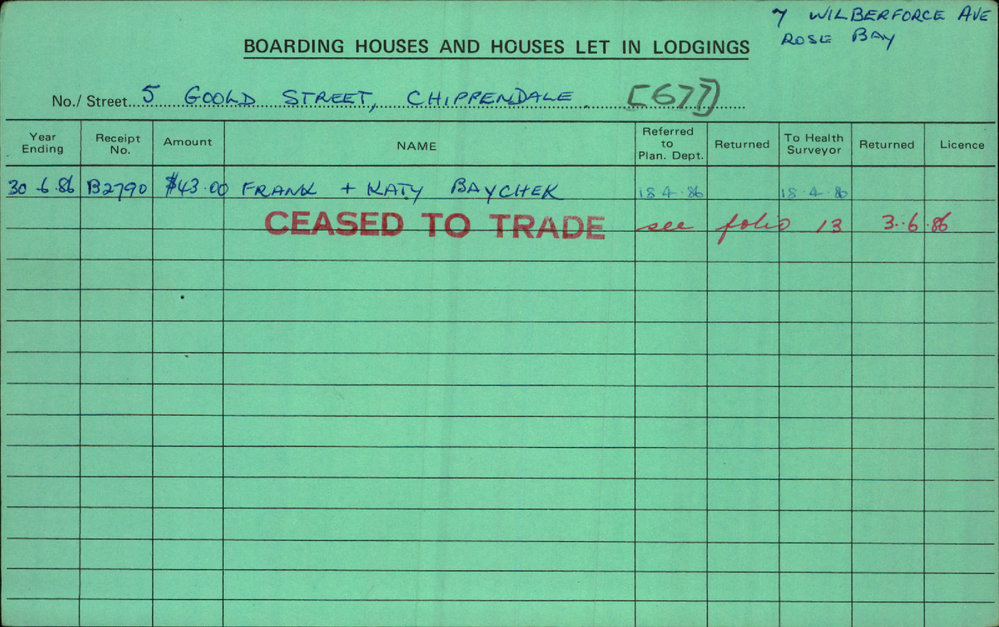 7 WILBERFORCE AVE
ROSE BAY
BOARDING HOUSES AND HOUSES LET IN LODGINGS
No./ Street 5 GOOLD STREET, CHIPPENDALE [677]
Year Ending Receipt No. Amount NAME Referred to Plan. Dept. Returned To Health Surveyor Returned Licence
30.6.86 B2790 $43.00 FRANK + KATY BAYCHEK 18.4.86 18.4.86
CEASED TO TRADE see folio 13 3.6.86